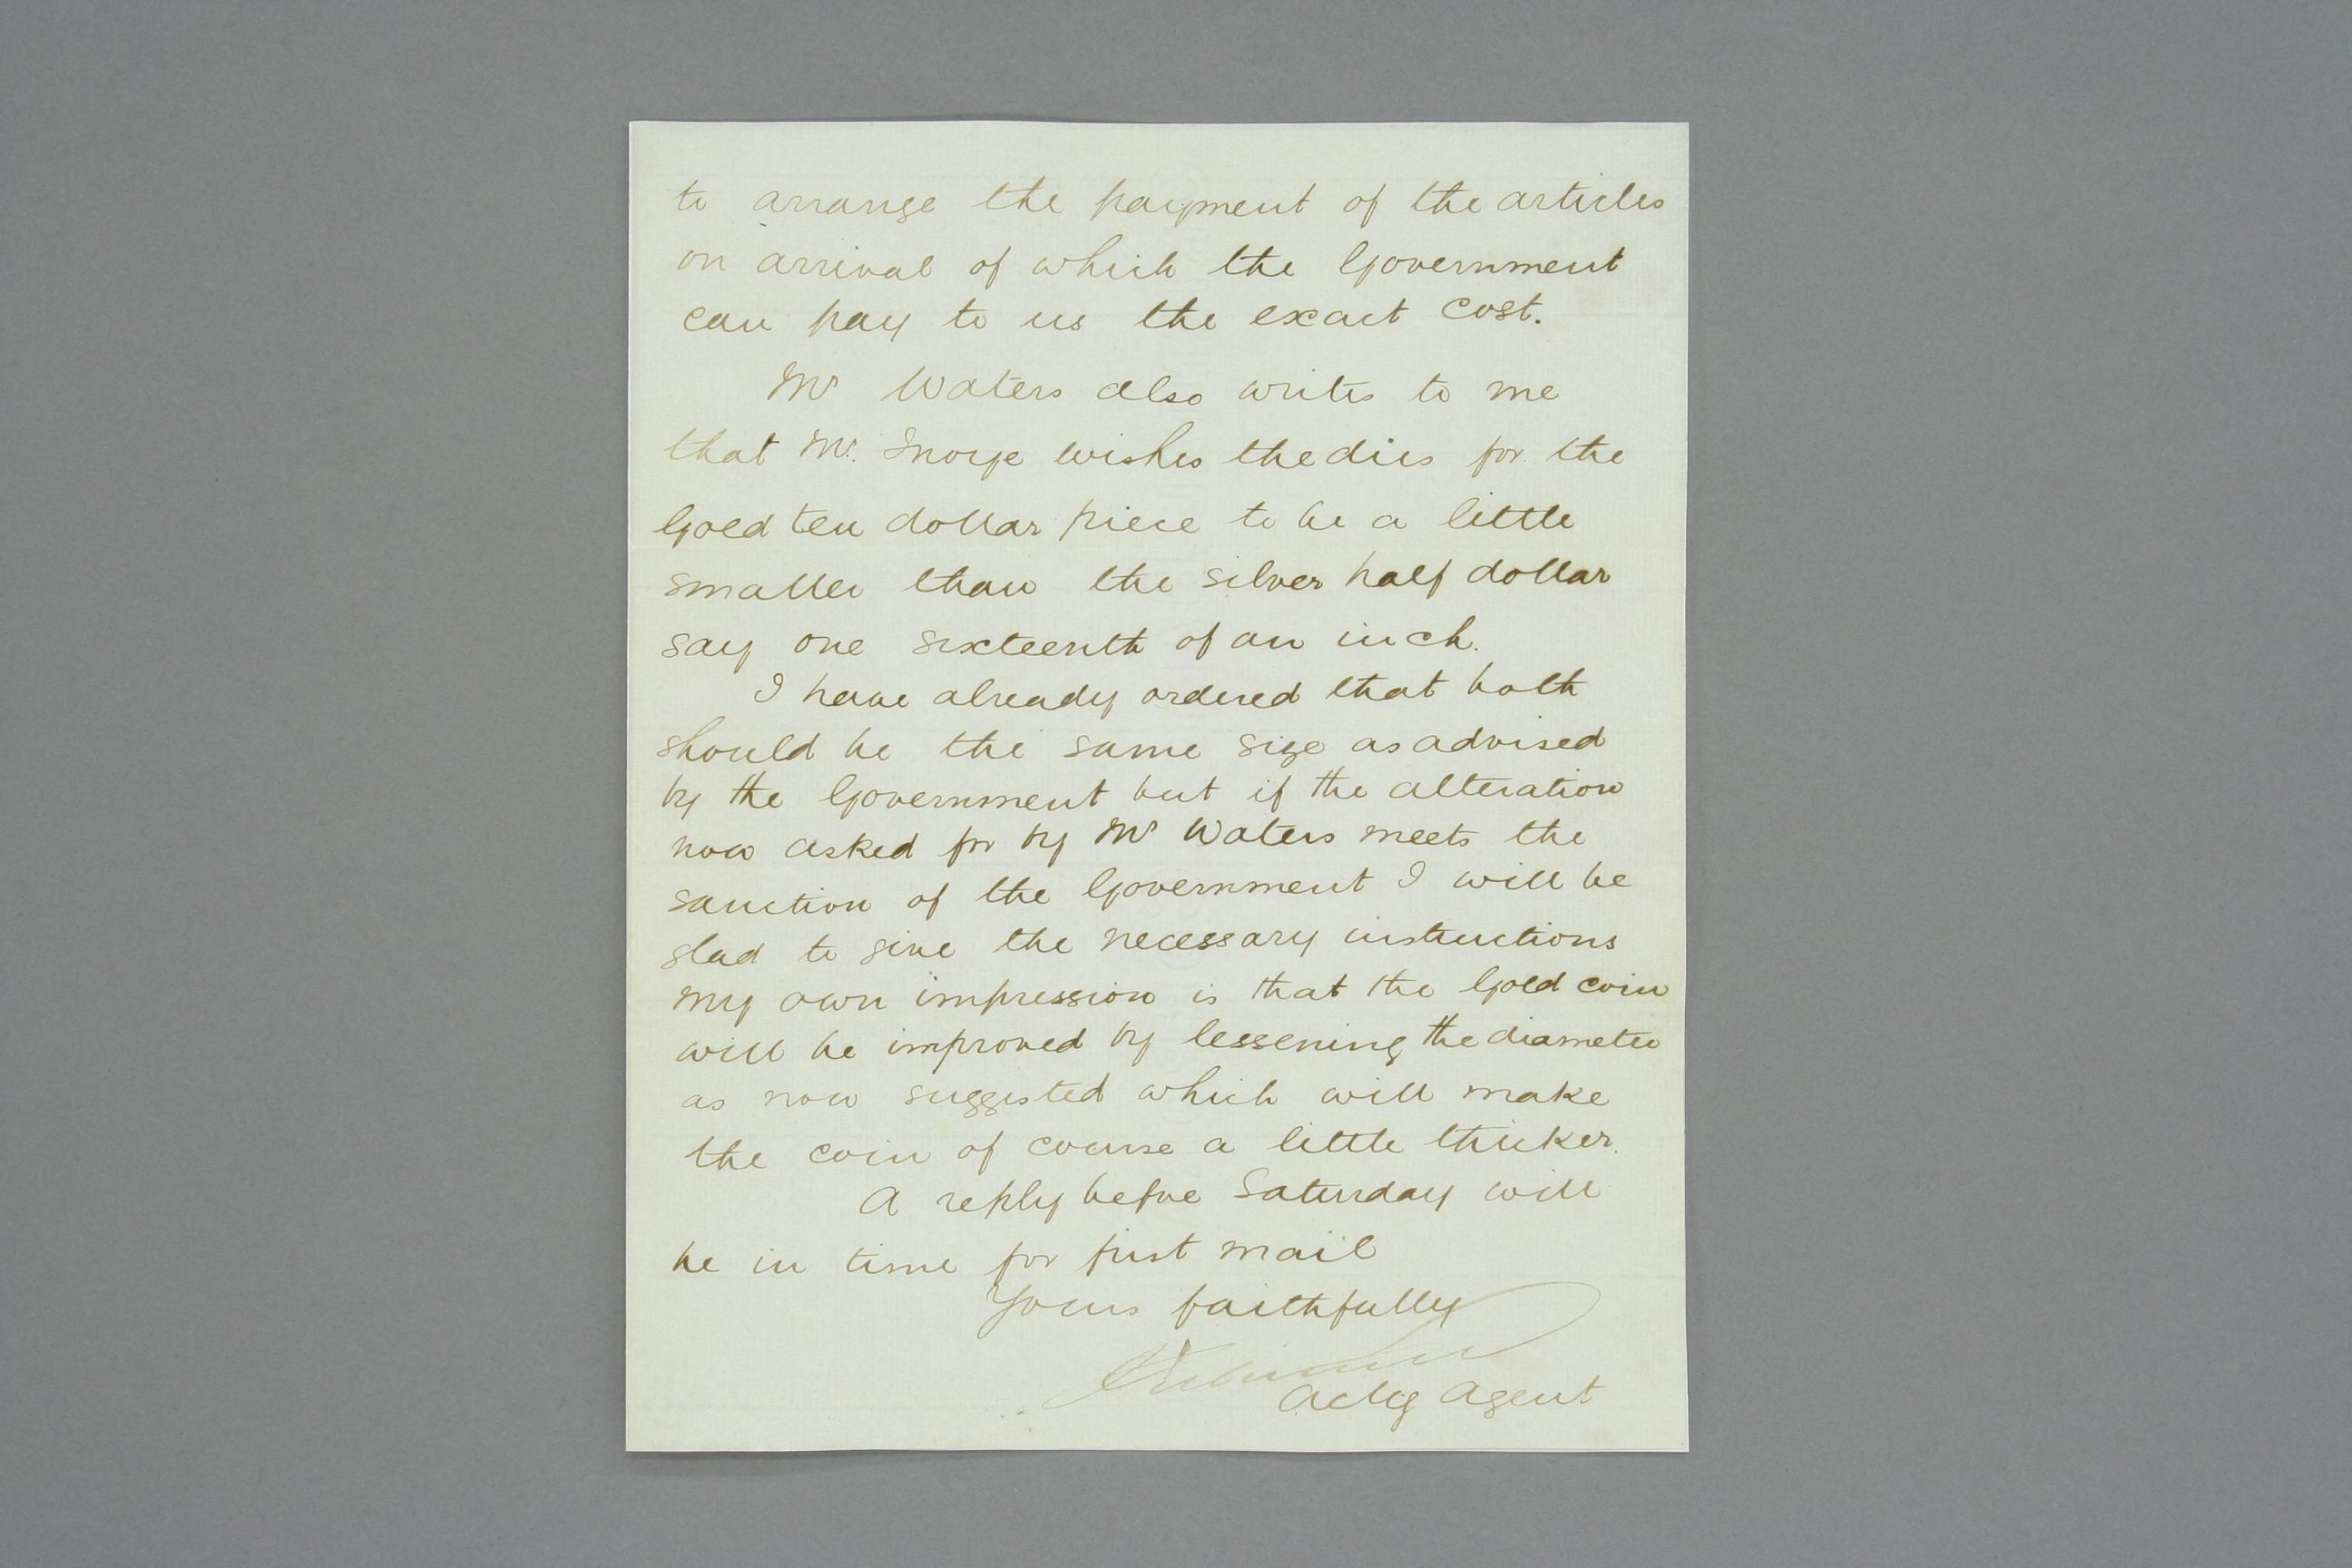 to arrange the payment of the articles
on arrival of which the Government
can pay to us the exact cost.
Mr Waters also writes to me
that Mr. wishes the dies for the
Gold ten dollar piece to be a little
smaller than the silver half dollar
say one sixteenth of an inch.
I have already ordered that both
should be the same size as advised
by the Government but if the alteration
now asked for by Mr Waters meets the
sanction of the Government I will be
glad to give the necessary instructions
My own impression is that the Gold coin
will be improved by lessening the diameter
as now suggested which will make
the coin of course a little thicker.
A reply before Saturday will
be in time for first mail
Yours faithfully
Actg Agent